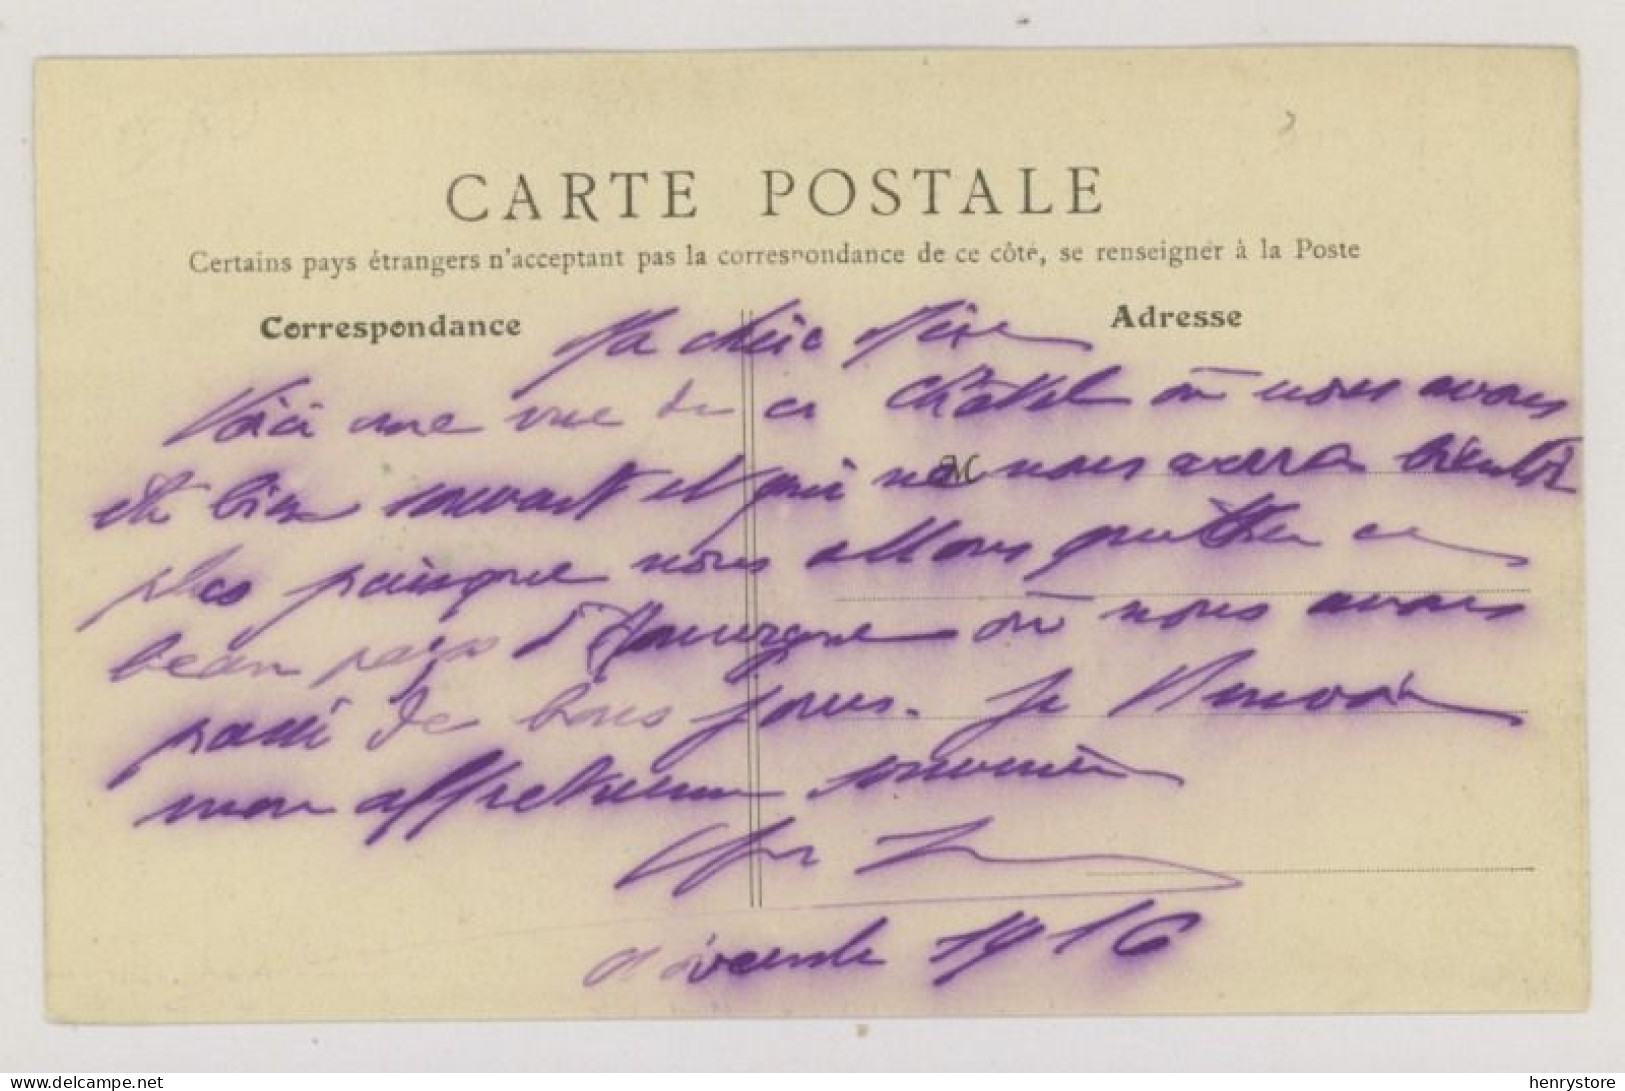 CARTE POSTALE
Certains pays étrangers n'acceptant pas la correspondance de ce côté, se renseigner à la Poste
Correspondance
Adresse
Ma chère Mère
Voici une vue de ce Châtel où nous avons
M
été bien souvent et qui ne nous verra bientôt
plus puisque nous allons quitter ce
beau pays d'Auvergne où nous avons
passé de bons jours. Je t'envoie
mon affectueux souvenir
1916
www.delcampe.net
henrystore